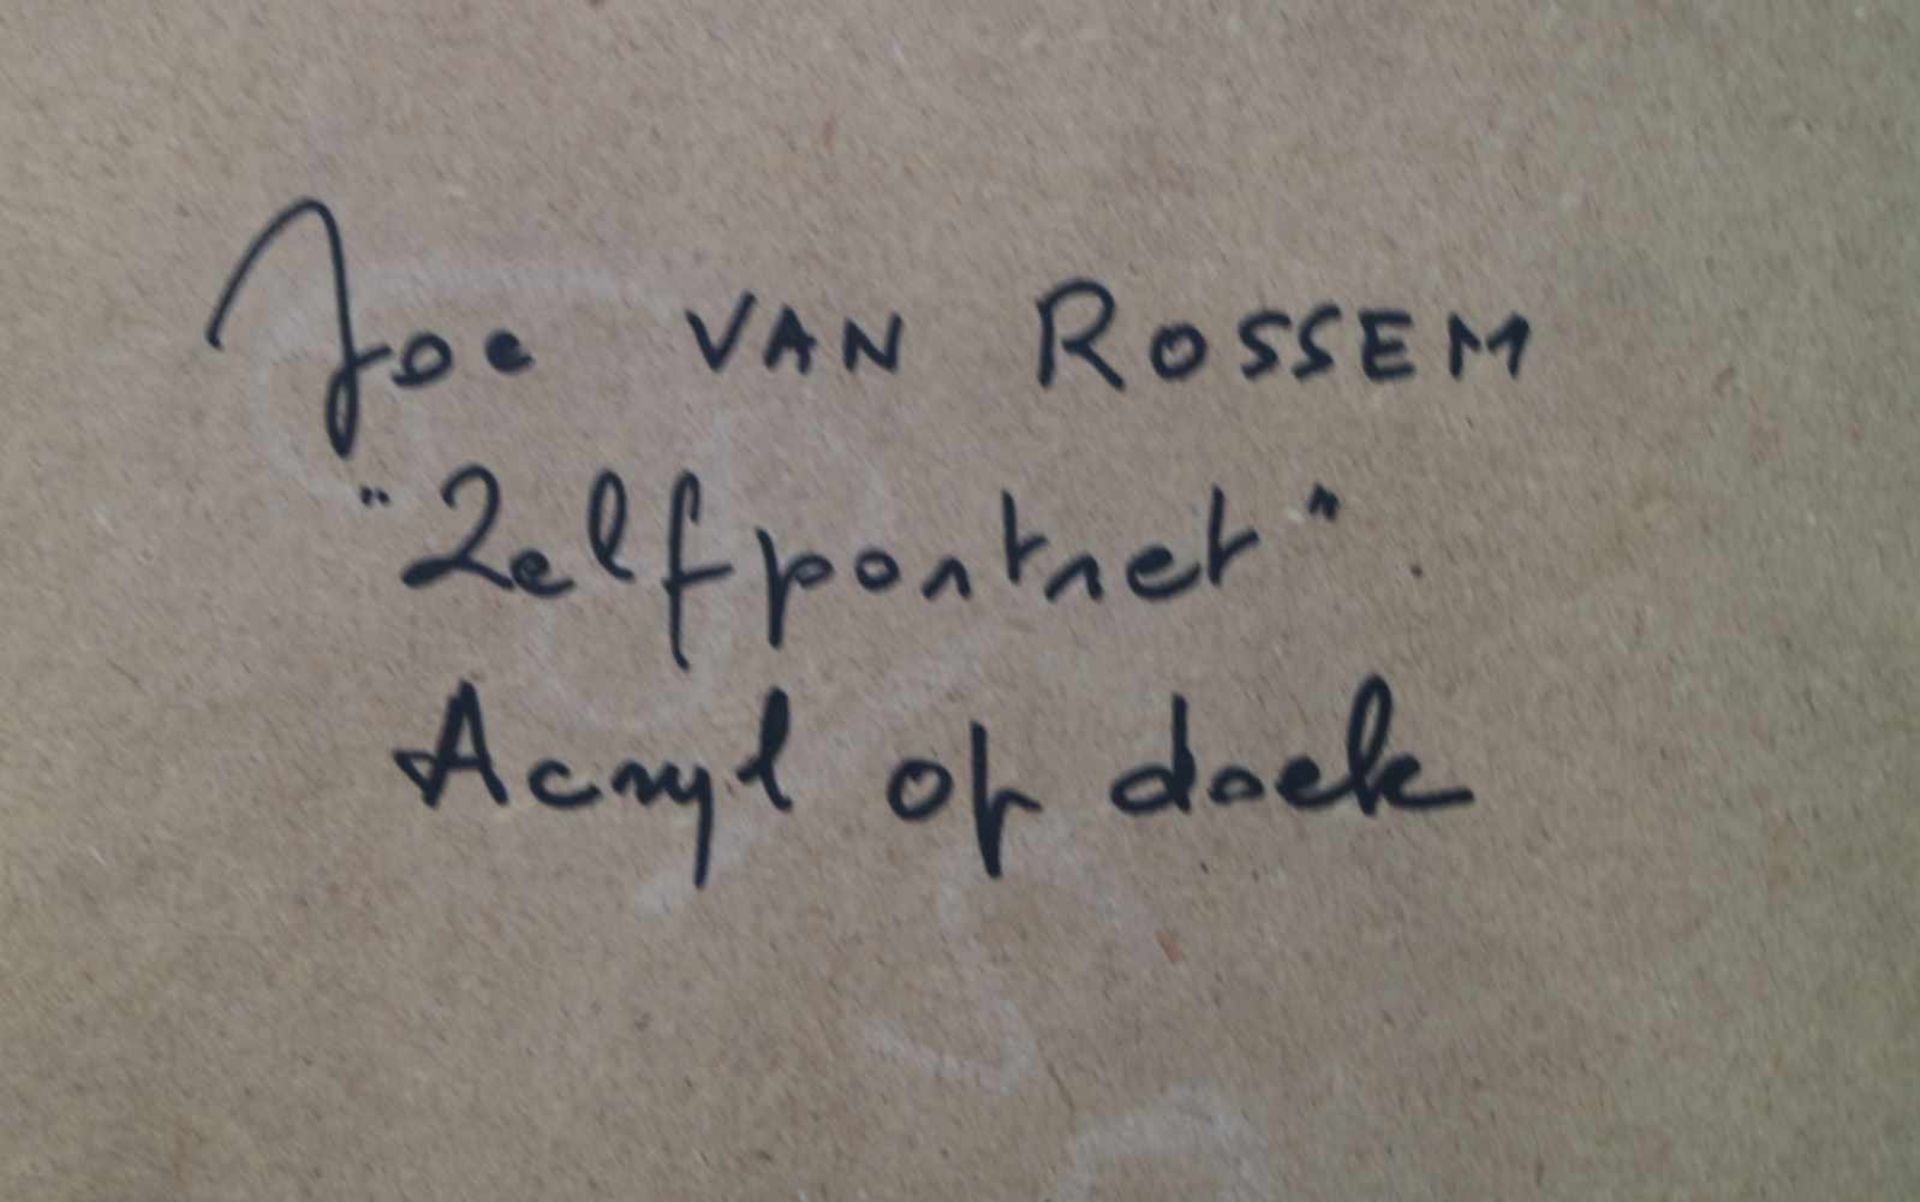 Joe VAN ROSSEM
"Zelfportret"
Acryl op doek